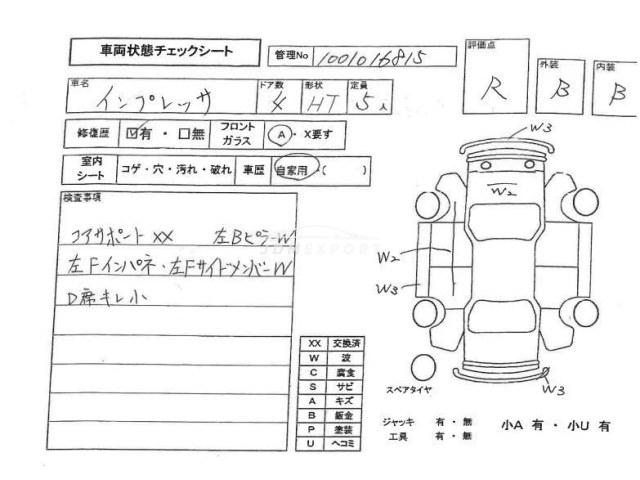 車両状態チェックシート 管理No 1001016815
評価点 R 外装 B 内装 B
車名 インプレッサ ドア数 4 形状 HT 定員 5人
修復歴 ☑有・□無 フロントガラス A・X要す
室内シート コゲ・穴・汚れ・破れ 車歴 自家用・( )
検査事項
コアサポートXX 左BピラーW
左Fインパネ・左FサイドメンバーW
D席キレ小
W3
W2
W2
W3
W3
XX 交換済
W 波
C 腐食
S サビ
A キズ
B 鈑金
P 塗装
U ヘコミ
スペアタイヤ
ジャッキ 有・無
工具 有・無
小A 有・小U 有
JDMEXPORT